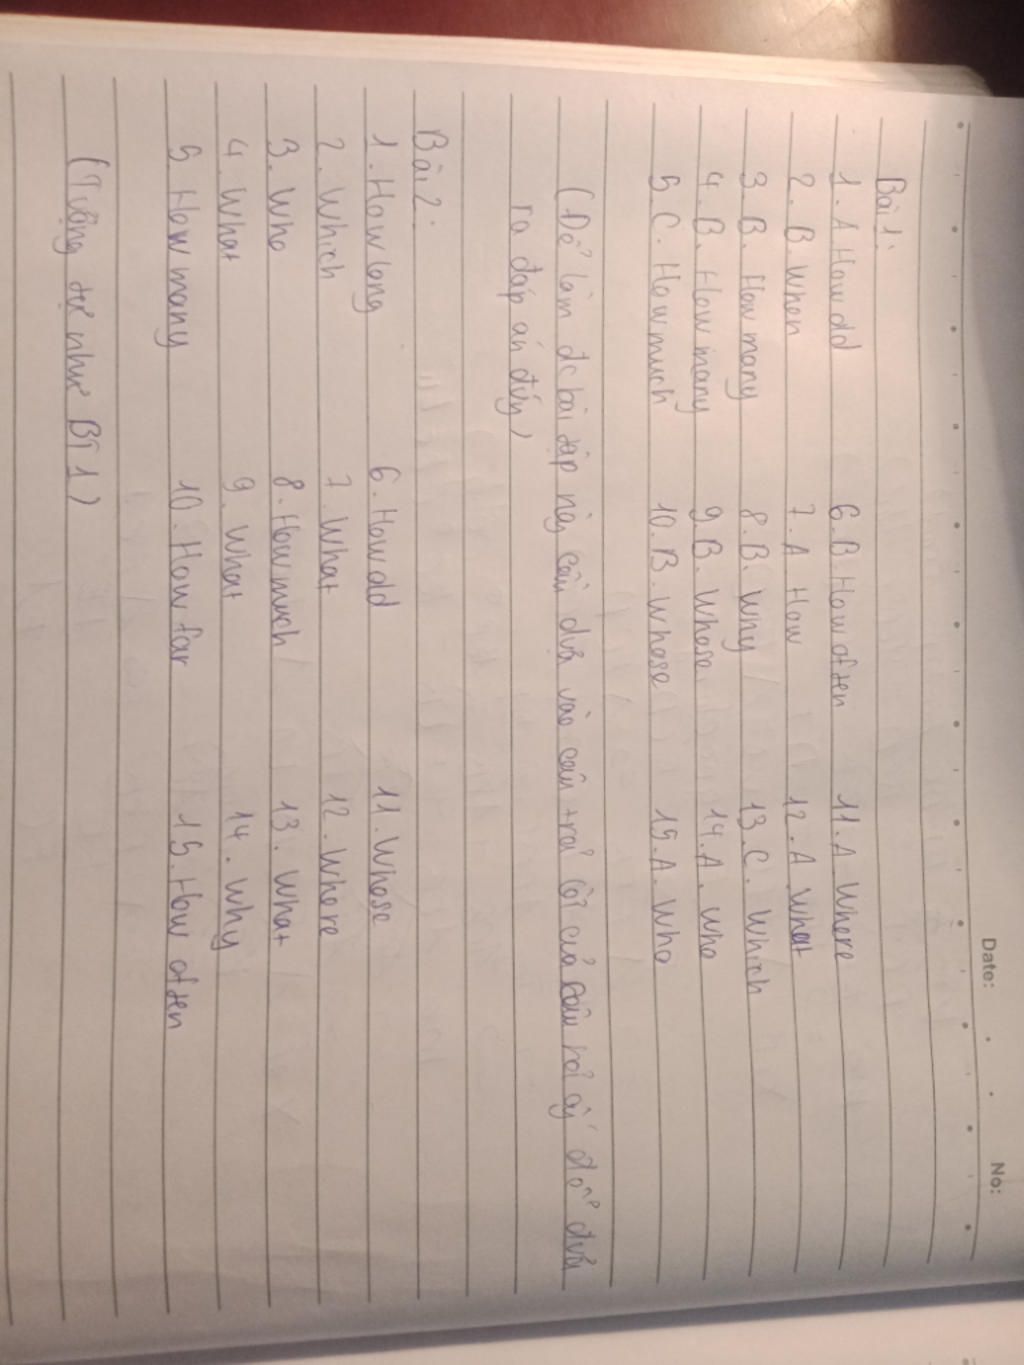 Date: No:
Bài 1:
1. A How old 6. B. How often 11. A Where
2. B. When 7. A How 12. A What
3. B. How many 8. B. Why 13. C. Which
4. B. How many 9. B. Whose 14. A. Who
5. C. How much 10. B. Whose 15. A. Who
(Để làm đc bài tập này cần dựa vào câu trả lời của câu hỏi ấy để đưa
ra đáp án đúng)
Bài 2:
1. How long 6. How old 11. Whose
2. Which 7. What 12. Where
3. Who 8. How much 13. What
4. What 9. What 14. Why
5. How many 10. How far 15. How often
(Tương tự như BT1)